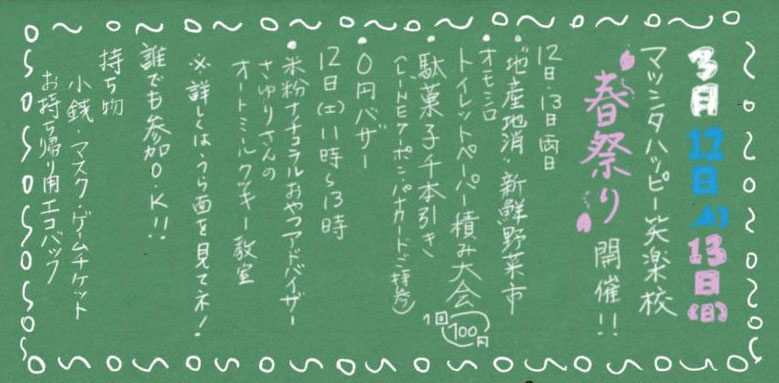 3月12日(土)13日(日)
マツシタハッピー笑楽校
春祭り開催!!
12日・13日両日
・地産地消〃新鮮野菜市
・オモシロ
トイレットペーパー積み大会
・駄菓子千本引き 1回100円
(LINEクーポン・パナカードご持参)
・0円バザー
12日(土)11時〜13時
・米粉ナチュラルおやつアドバイザー
さゆりさんの
オートミルクッキー教室
※詳しくはうら面を見てネ!
誰でも参加O.K!!
持ち物
小銭・マスク・ゲームチケット
お持ち帰り用エコバック